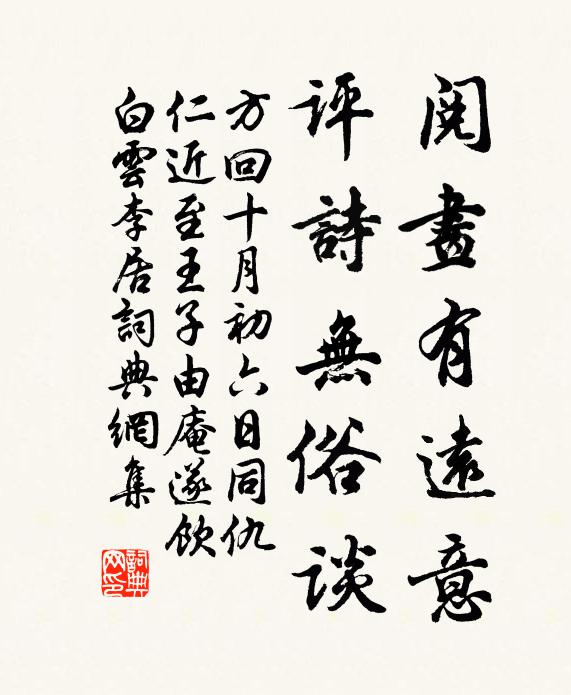 閱畫有遠意
評詩無俗談
方回十月初六日同仇
仁近至王子由庵遂飲
白雲李居詞典網集
詞典網印